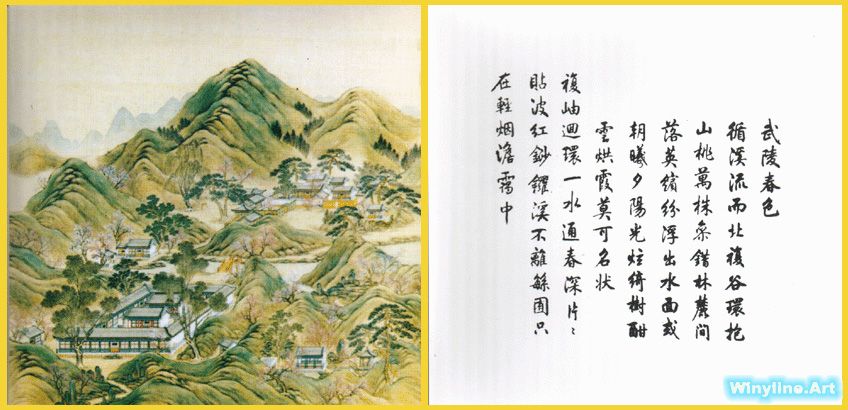 武陵春色
循溪流而北複谷環抱
山桃萬株參錯林麓間
落英繽紛浮出水面或
朝曦夕陽光炫綺樹酣
雪烘霞莫可名狀
複岫迴環一水通春深片〻
貼波紅鈔鑼溪不離繇囿只
在輕烟澹靄中
Winyline.Art